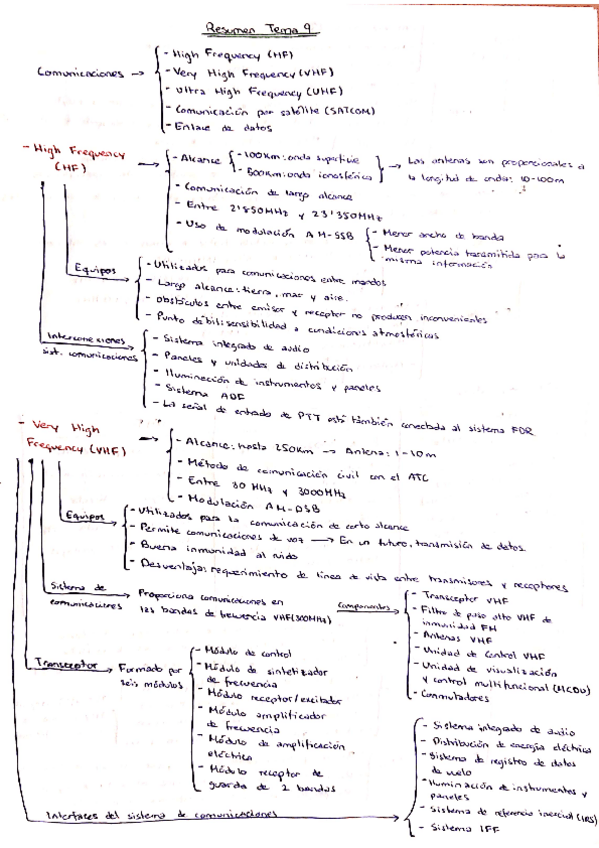 Resumen Tema 9
Comunicaciones →
- High Frequency (HF)
- Very High Frequency (VHF)
- Ultra High Frequency (UHF)
- Comunicación por satélite (SATCOM)
- Enlace de datos
- High Frequency
(HF)
- Alcance
- 100Km: onda superficie
- 500Km: onda ionosférica
→ Las antenas son proporcionales a
la longitud de onda: 10-100m
- Comunicación de largo alcance
- Entre 2'850MHz y 23'350MHz
- Uso de modulación AM-SSB
- Menor ancho de banda
- Menor potencia transmitida para la
misma información
Equipos
- Utilizados para comunicaciones entre mandos
- Largo alcance: tierra, mar y aire.
- Obstáculos entre emisor y receptor no producen inconvenientes
- Punto débil: sensibilidad a condiciones atmosféricas
Interconexiones
sist. comunicaciones
- Sistema integrado de audio
- Paneles y unidades de distribución
- Iluminación de instrumentos y paneles
- Sistema ADF
- La señal de entrada de PTT está también conectada al sistema FDR
- Very High
Frequency (VHF)
- Alcance: hasta 250Km → Antena: 1-10m
- Método de comunicación civil con el ATC
- Entre 30 MHz y 3000MHz
- Modulación AM-DSB
Equipos
- Utilizados para la comunicación de corto alcance
- Permite comunicaciones de voz → En un futuro, transmisión de datos
- Buena inmunidad al ruido
- Desventaja: requerimiento de línea de vista entre transmisores y receptores
Sistema de
comunicaciones
Proporciona comunicaciones en
bandas de frecuencia VHF(300MHz)
Componentes
- Transceptor VHF
- Filtro de paso alto VHF de
inmunidad FM
- Antenas VHF
- Unidad de control VHF
- Unidad de visualización
y control multifuncional (MCDU)
- Conmutadores
Transceptor → Formado por
seis módulos
- Módulo de control
- Módulo de sintetizador
de frecuencia
- Módulo receptor/excitador
- Módulo amplificador
de frecuencia
- Módulo de amplificación
eléctrica
- Módulo receptor de
guarda de 2 bandas
Interfaces del sistema de comunicaciones
- Sistema integrado de audio
- Distribución de energía eléctrica
- Sistema de registro de datos
de vuelo
- Iluminación de instrumentos y
paneles
- Sistema de referencia inercial (IRS)
- Sistema IFF